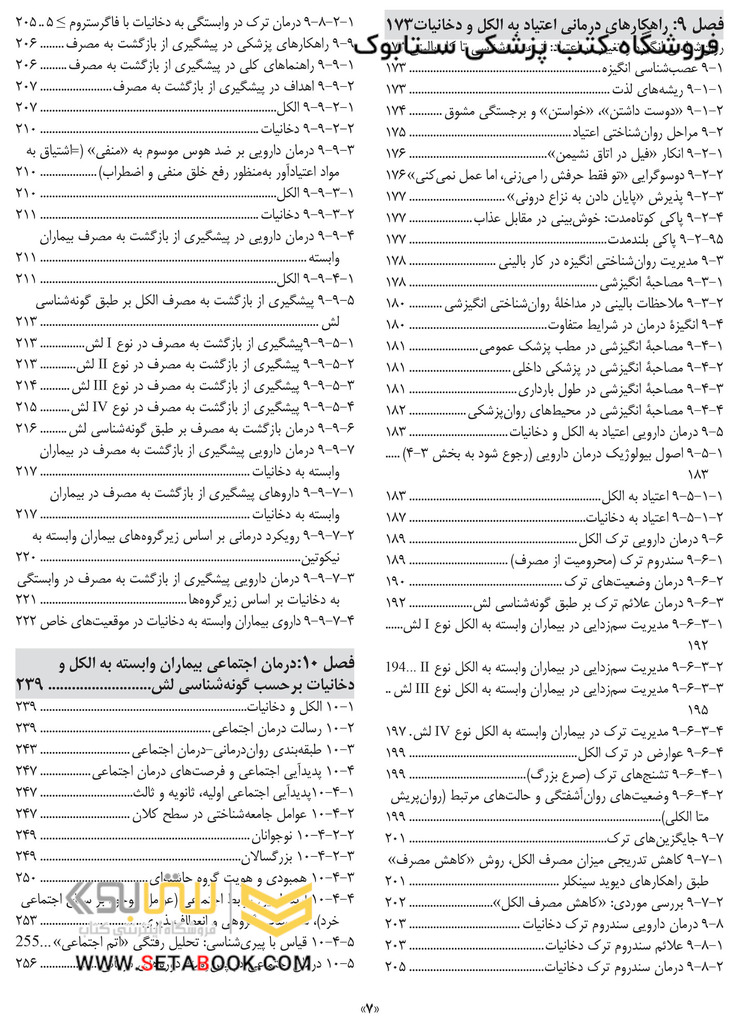 فصل ۹: راهکارهای درمانی اعتیاد به الکل و دخانیات۱۷۳
فروشگاه کتب پزشکی ستابوک
۹-۱ عصب‌شناسی انگیزه ........ ۱۷۳
۹-۱-۱ ریشه‌های لذت ........ ۱۷۳
۹-۱-۲ «دوست داشتن»، «خواستن» و برجستگی مشوق ........ ۱۷۴
۹-۲ مراحل روان‌شناختی اعتیاد ........ ۱۷۵
۹-۲-۱ انکار «فیل در اتاق نشیمن» ........ ۱۷۶
۹-۲-۲ دوسوگرایی «تو فقط حرفش را می‌زنی، اما عمل نمی‌کنی» ۱۷۶
۹-۲-۳ پذیرش «پایان دادن به نزاع درونی» ........ ۱۷۷
۹-۲-۴ پاکی کوتاه‌مدت: خوش‌بینی در مقابل عذاب ........ ۱۷۷
۹-۲-۹۵ پاکی بلندمدت ........ ۱۷۷
۹-۳ مدیریت روان‌شناختی انگیزه در کار بالینی ........ ۱۷۸
۹-۳-۱ مصاحبهٔ انگیزشی ........ ۱۷۸
۹-۳-۲ ملاحظات بالینی در مداخلهٔ روان‌شناختی انگیزشی ........ ۱۸۰
۹-۴ انگیزهٔ درمان در شرایط متفاوت ........ ۱۸۰
۹-۴-۱ مصاحبهٔ انگیزشی در مطب پزشک عمومی ........ ۱۸۱
۹-۴-۲ مصاحبهٔ انگیزشی در پزشکی داخلی ........ ۱۸۱
۹-۴-۳ مصاحبهٔ انگیزشی در طول بارداری ........ ۱۸۱
۹-۴-۴ مصاحبهٔ انگیزشی در محیط‌های روان‌پزشکی ........ ۱۸۲
۹-۵ درمان دارویی اعتیاد به الکل و دخانیات ........ ۱۸۳
۹-۵-۱ اصول بیولوژیک درمان دارویی (رجوع شود به بخش ۳-۴) .....
۱۸۳
۹-۵-۱-۱ اعتیاد به الکل ........ ۱۸۳
۹-۵-۱-۲ اعتیاد به دخانیات ........ ۱۸۷
۹-۶ درمان دارویی ترک الکل ........ ۱۸۹
۹-۶-۱ سندروم ترک (محرومیت از مصرف) ........ ۱۸۹
۹-۶-۲ درمان وضعیت‌های ترک ........ ۱۹۰
۹-۶-۳ درمان علائم ترک بر طبق گونه‌شناسی لش ........ ۱۹۲
۹-۶-۳-۱ مدیریت سم‌زدایی در بیماران وابسته به الکل نوع I لش......
۱۹۲
۹-۶-۳-۲ مدیریت سم‌زدایی در بیماران وابسته به الکل نوع II ...194
۹-۶-۳-۳ مدیریت سم‌زدایی در بیماران وابسته به الکل نوع III لش ..
۱۹۵
۹-۶-۳-۴ مدیریت ترک در بیماران وابسته به الکل نوع IV لش. ۱۹۷
۹-۶-۴ عوارض در ترک الکل ........ ۱۹۹
۹-۶-۴-۱ تشنج‌های ترک (صرع بزرگ) ........ ۱۹۹
۹-۶-۴-۲ وضعیت‌های روان‌آشفتگی و حالت‌های مرتبط (روان‌پریش
متا الکلی) ........ ۱۹۹
۹-۷ جایگزین‌های ترک ........ ۲۰۱
۹-۷-۱ کاهش تدریجی میزان مصرف الکل، روش «کاهش مصرف»
طبق راهکارهای دیوید سینکلر ........ ۲۰۱
۹-۷-۲ بررسی موردی: «کاهش مصرف الکل» ........ ۲۰۲
۹-۸ درمان دارویی سندروم ترک دخانیات ........ ۲۰۳
۹-۸-۱ علائم سندروم ترک دخانیات ........ ۲۰۳
۹-۸-۲ درمان سندروم ترک دخانیات ........ ۲۰۵
۹-۸-۲-۱ درمان ترک در وابستگی به دخانیات با فاگرستروم ≥ ۵ .. ۲۰۵
۹-۹ راهکارهای پزشکی در پیشگیری از بازگشت به مصرف ........ ۲۰۶
۹-۹-۱ راهنماهای کلی در پیشگیری از بازگشت به مصرف ........ ۲۰۶
۹-۹-۲ اهداف در پیشگیری از بازگشت به مصرف ........ ۲۰۷
۹-۹-۲-۱ الکل ........ ۲۰۷
۹-۹-۲-۲ دخانیات ........ ۲۱۰
۹-۹-۳ درمان دارویی بر ضد هوس موسوم به «منفی» (=اشتیاق به
مواد اعتیادآور به‌منظور رفع خلق منفی و اضطراب) ........ ۲۱۰
۹-۹-۳-۱ الکل ........ ۲۱۰
۹-۹-۳-۲ دخانیات ........ ۲۱۱
۹-۹-۴ درمان دارویی در پیشگیری از بازگشت به مصرف بیماران
وابسته ........ ۲۱۱
۹-۹-۴-۱ الکل ........ ۲۱۱
۹-۹-۵ پیشگیری از بازگشت به مصرف الکل بر طبق گونه‌شناسی
لش ........ ۲۱۳
۹-۹-۵-۱پیشگیری از بازگشت به مصرف در نوع I لش ........ ۲۱۳
۹-۹-۵-۲ پیشگیری از بازگشت به مصرف در نوع II لش ........ ۲۱۳
۹-۹-۵-۳ پیشگیری از بازگشت به مصرف در نوع III لش ........ ۲۱۴
۹-۹-۵-۴ پیشگیری از بازگشت به مصرف در نوع IV لش ........ ۲۱۵
۹-۹-۶ درمان بازگشت به مصرف بر طبق گونه‌شناسی لش ........ ۲۱۶
۹-۹-۷ درمان دارویی پیشگیری از بازگشت به مصرف در بیماران
وابسته به دخانیات ........ ۲۱۷
۹-۹-۷-۱ داروهای پیشگیری از بازگشت به مصرف در بیماران
وابسته به دخانیات ........ ۲۱۷
۹-۹-۷-۲ رویکرد درمانی بر اساس زیرگروه‌های بیماران وابسته به
نیکوتین ........ ۲۲۰
۹-۹-۷-۳ درمان دارویی پیشگیری از بازگشت به مصرف در وابستگی
به دخانیات بر اساس زیرگروه‌ها ........ ۲۲۱
۹-۹-۷-۴ داروی بیماران وابسته به دخانیات در موقعیت‌های خاص ۲۲۲
فصل ۱۰:درمان اجتماعی بیماران وابسته به الکل و
دخانیات برحسب گونه‌شناسی لش ........ ۲۳۹
۱۰-۱ الکل و دخانیات ........ ۲۳۹
۱۰-۲ رسالت درمان اجتماعی ........ ۲۳۹
۱۰-۳ طبقه‌بندی روان‌درمانی-درمان اجتماعی ........ ۲۴۳
۱۰-۴ پدیدآیی اجتماعی و فرصت‌های درمان اجتماعی ........ ۲۴۷
۱۰-۴-۱پدیدآیی اجتماعی اولیه، ثانویه و ثالث ........ ۲۴۷
۱۰-۴-۲ عوامل جامعه‌شناختی در سطح کلان ........ ۲۴۷
۱۰-۴-۲-۲ نوجوانان ........ ۲۴۹
۱۰-۴-۲-۳ بزرگسالان ........ ۲۴۹
۱۰-۴-۳ همبودی و هویت گروه حاشیه‌ای ........ ۲۵۰
۱۰-۴-۴ اجتماعی
خرد)، و انعطاف‌پذیری ........ ۲۵۳
۱۰-۴-۵ قیاس با پیری‌شناسی: تحلیل رفتگی «اتم اجتماعی» ...255
۱۰-۵ ........ ۲۵۶
ستابوک
فروشگاه اینترنتی کتاب
WWW.SETABOOK.COM
«۷»